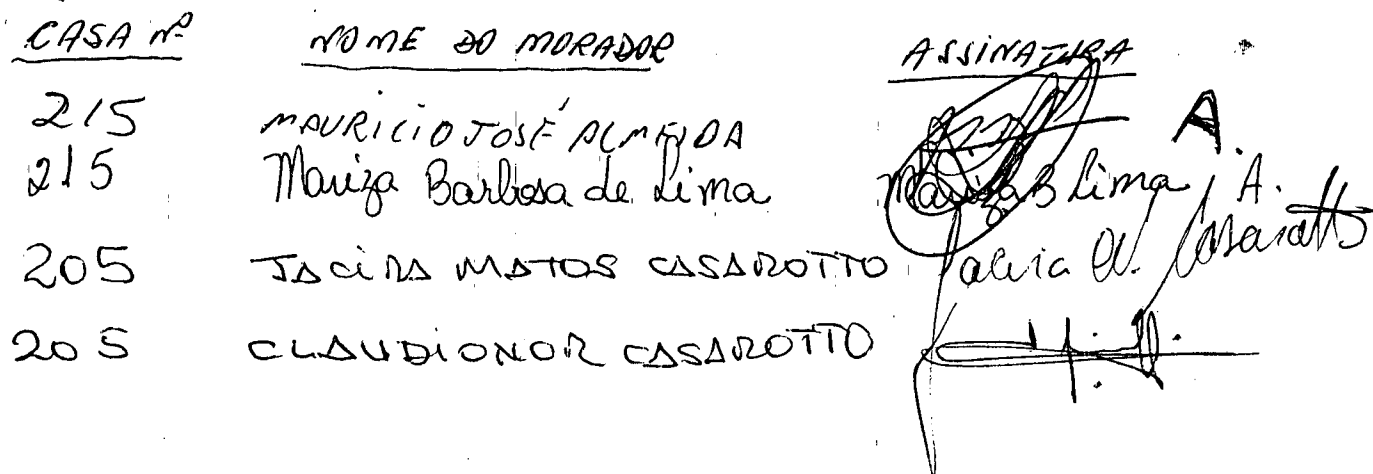 CASA Nº NOME DO MORADOR ASSINATURA
215 MAURICIO JOSÉ ALMEIDA A.
215 Mariza Barbosa de Lima Mariza B Lima A.
205 JACIRA MATOS CASAROTTO Jacira M. Casarotto
205 CLAUDIONOR CASAROTTO